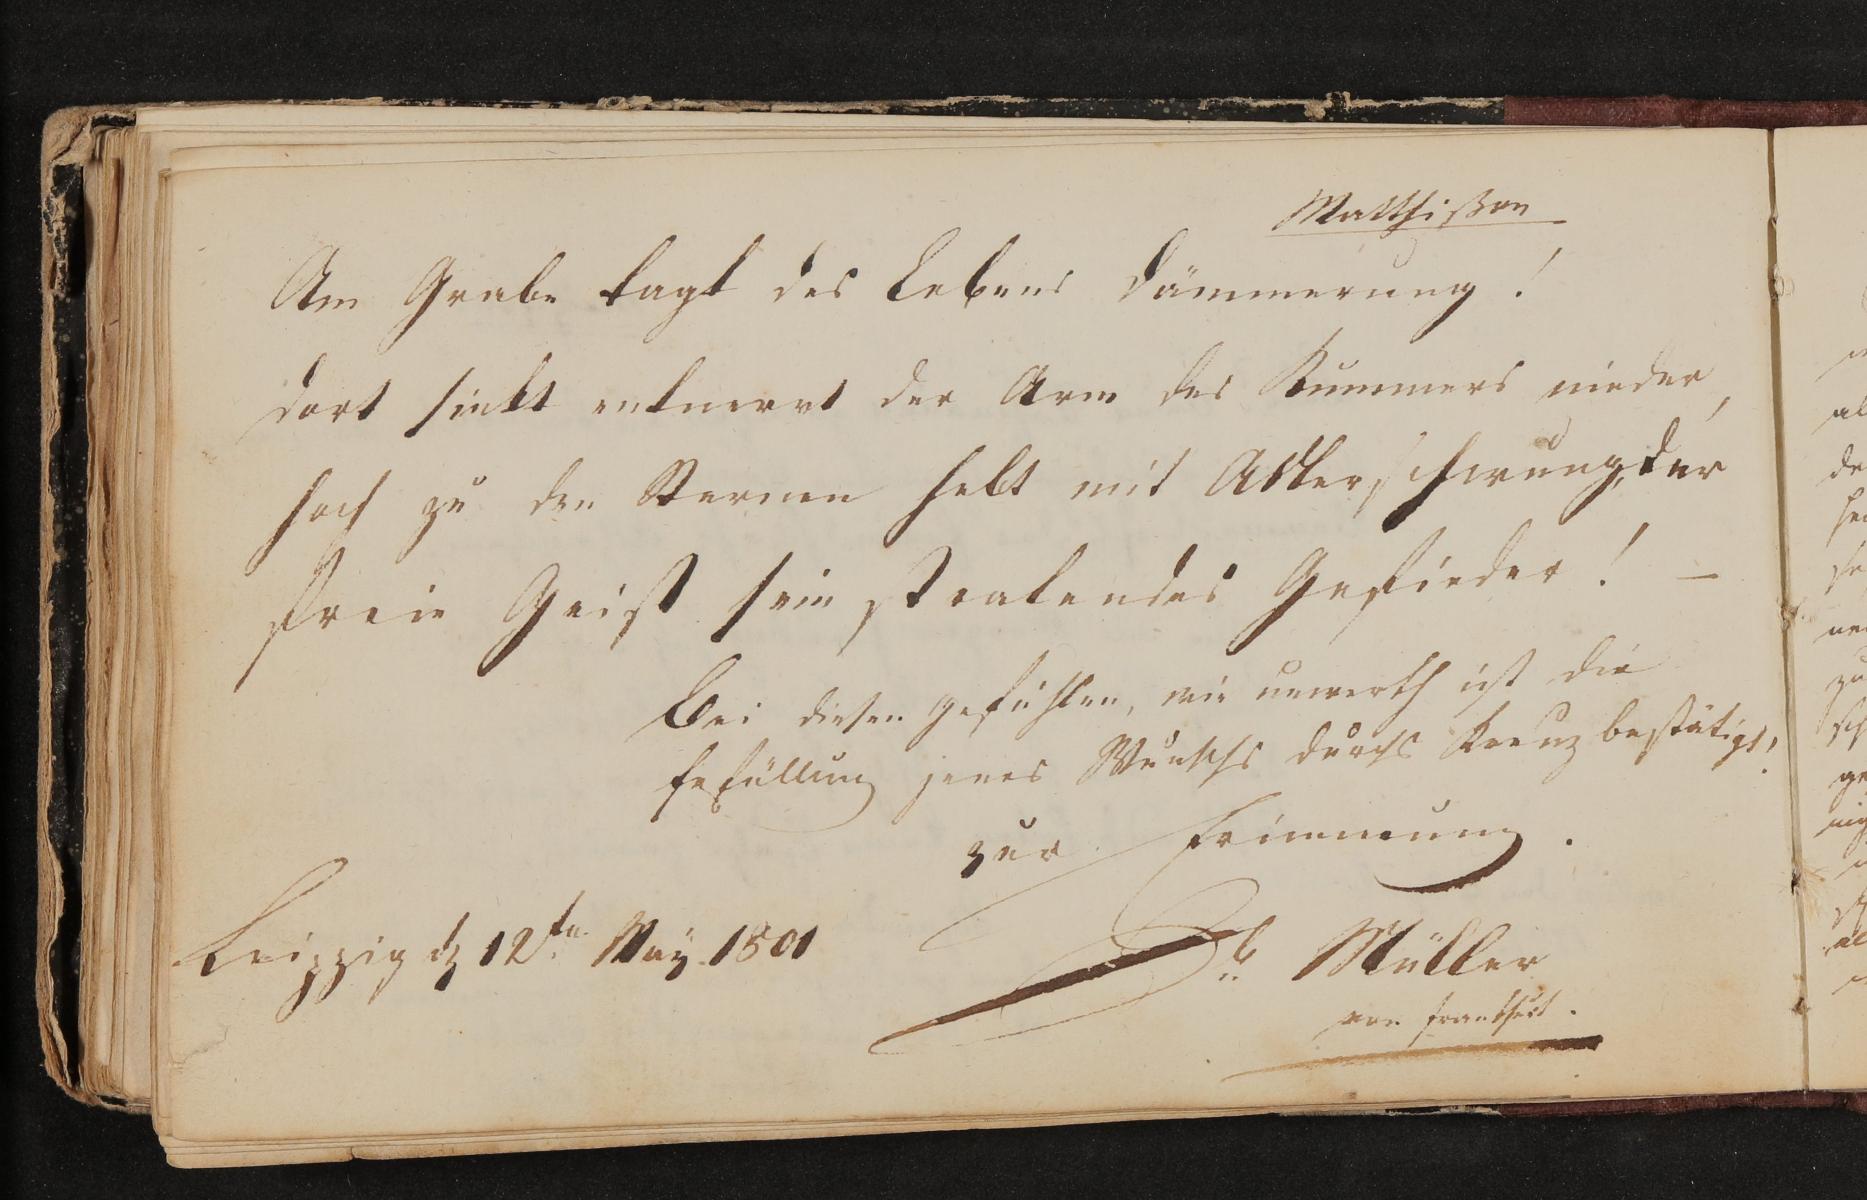 Matthißon
Am Grabe tagt des Lebens Dämmerung!
dort sinkt entnervt der Arm des Kummers nieder,
hoch zu den Sternen hebt mit Adlerschwung, der
freie Geist sein stralendes Gefieder! —
Bei diesen Gefühlen, wie unwerth ist die
Erfüllung jenes Wunsches durchs Kreuz bestätigt,
zur Erinnerung.
Leipzig d 12ten May 1801
Müller
von